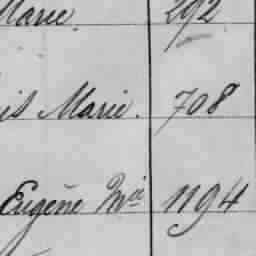 Marie. 292
is Marie. 708
Eugène Mie 1194